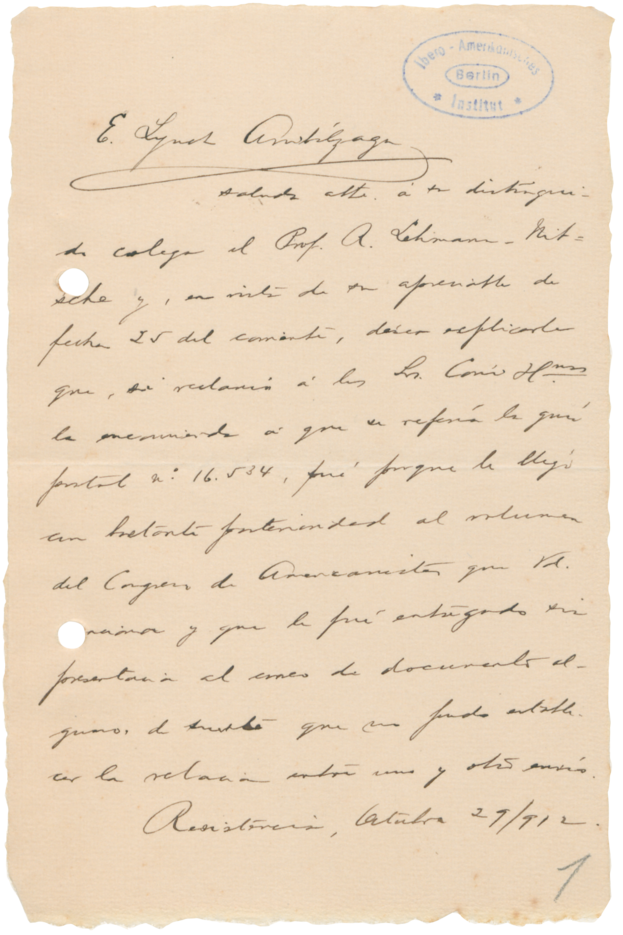 Ibero-Amerikanisches
Berlin
* Institut *
E. Lynch Arribálzaga
saluda atte. á su distingui-
do colega el Prof. R. Lehmann-Nit=
sche y, en vista de su apreciable de
fecha 25 del corriente, desea explicarle
que, si reclamó á los Srs. Coni Hnos
la encomienda á que se refería la guía
postal nº 16.534, fué porque le llegó
con bastante posterioridad al volumen
del Congreso de Americanistas que Vd.
menciona y que le fué entregado sin
presentación al correo de documento al-
guno, de suerte que no pudo estable-
cer la relacion entre uno y otro envío.
Resistencia, Octubre 29/912.
1